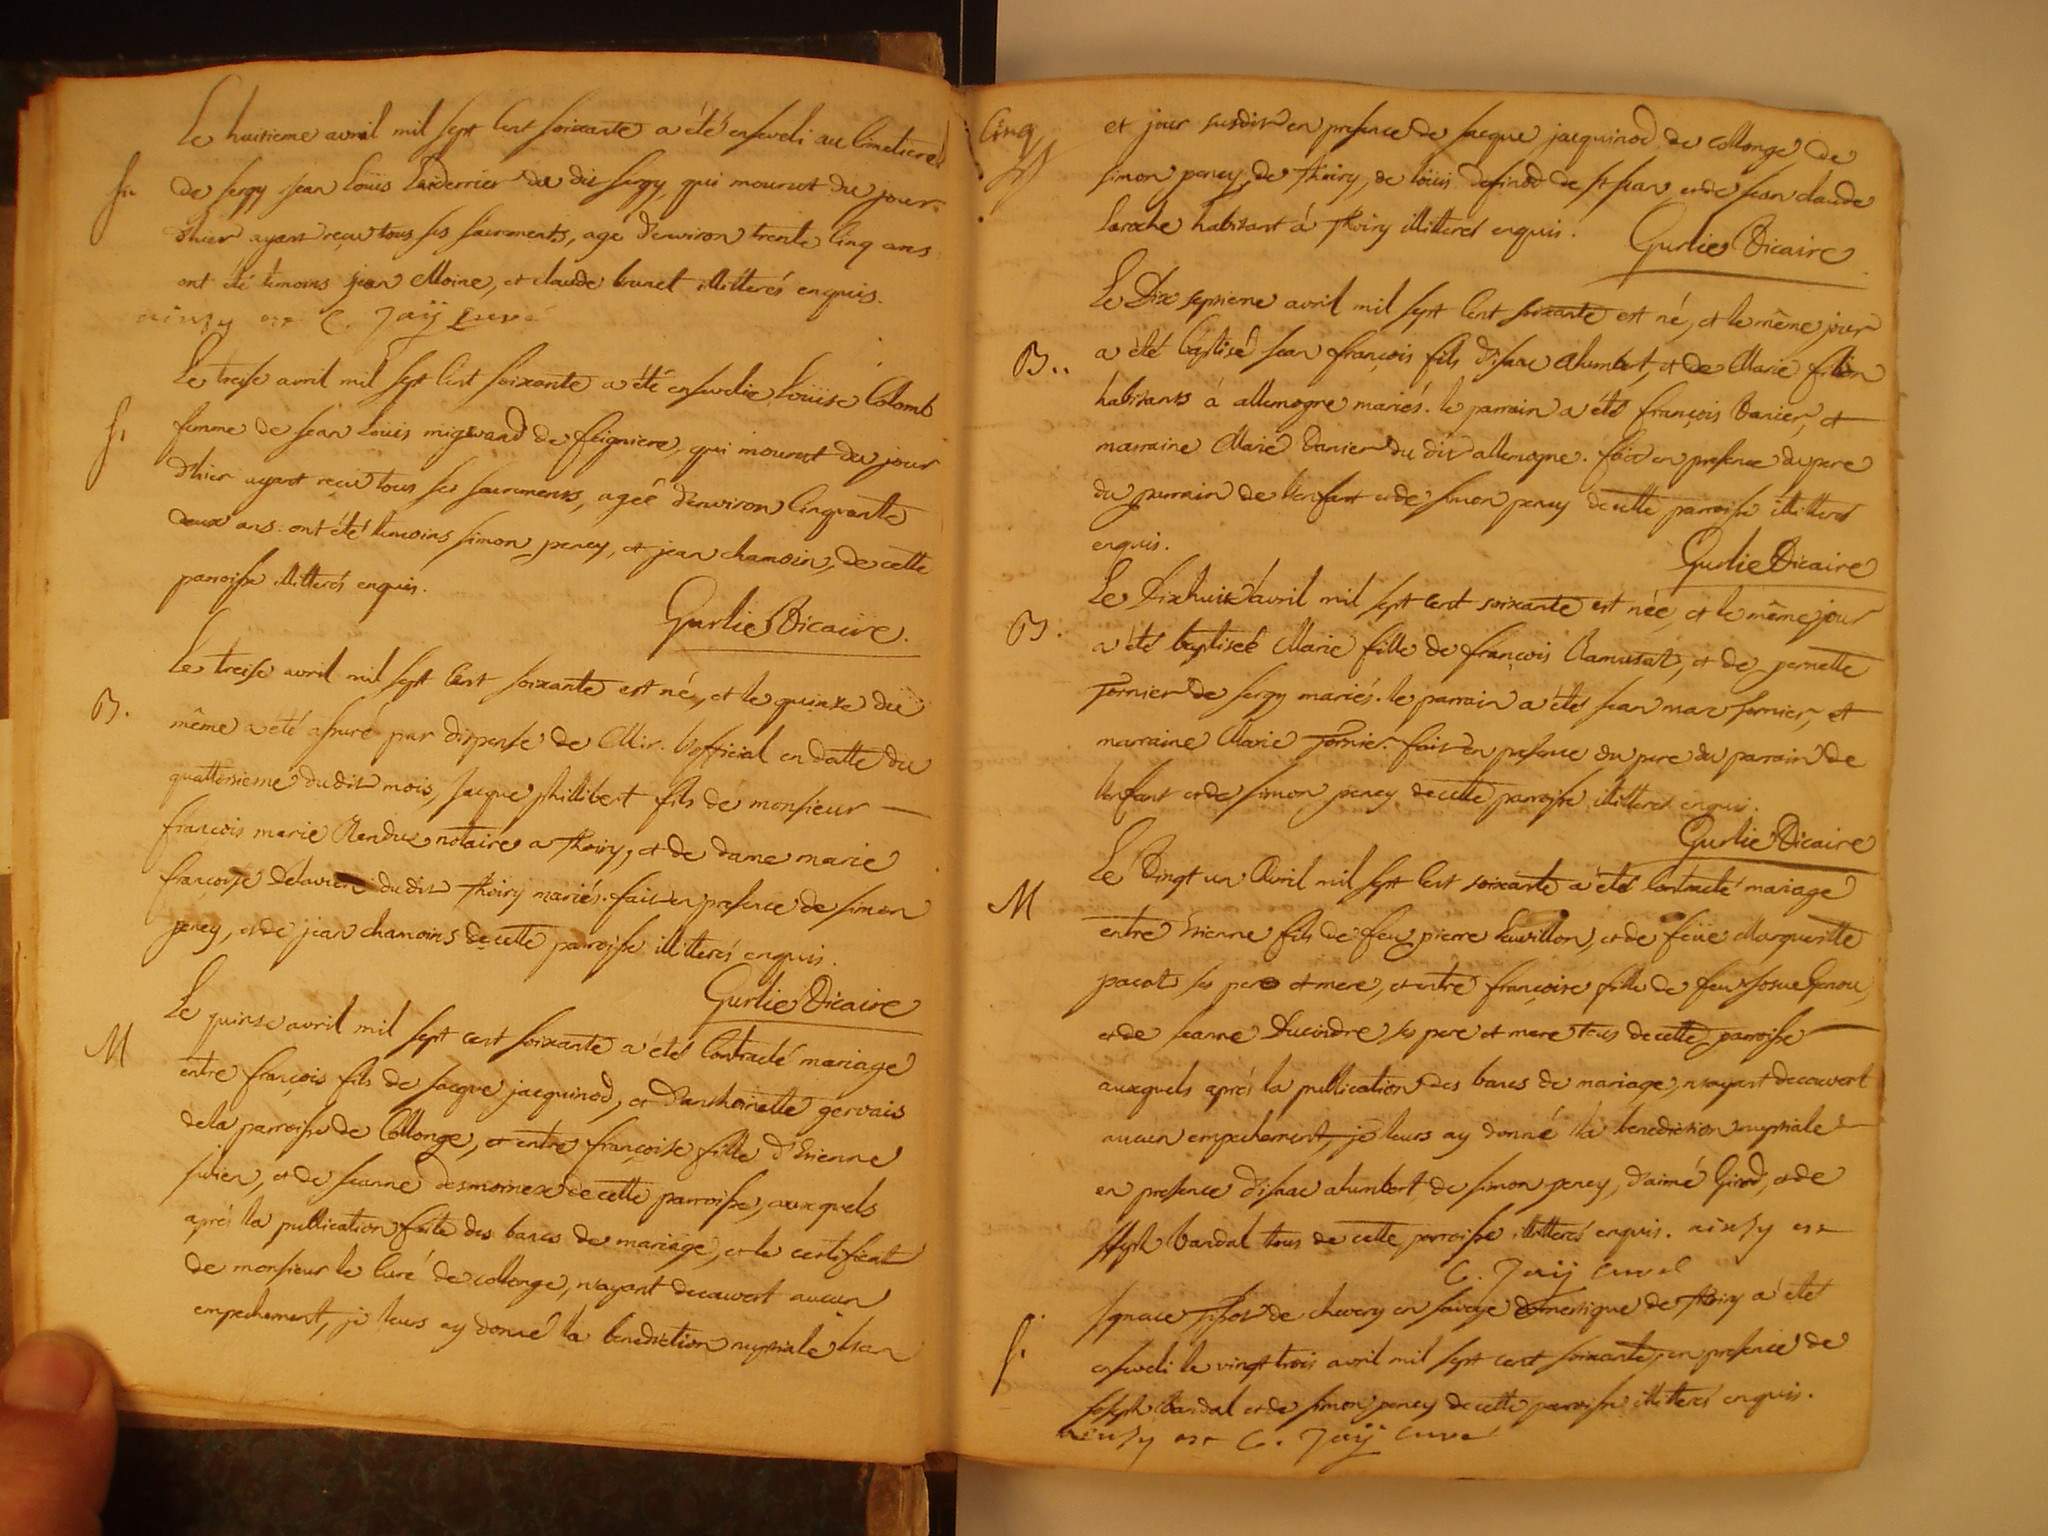 Le huitieme avril mil sept Cent soixante a été enseveli au Cimetiere
S.
de sergy jean Loüis du dit sergy, qui mourut du jour
d'hier ayant reçu tous ses sacrements, age d'environ trente Cinq ans
ont été temoins jean Moine, et claude brunet illitterés enquis.
ainsy est C. Jaÿ Curé
Le treise avril mil sept Cent soixante a été ensevelie Loüise Colomb
S.
femme de jean Loüis de feigniere, qui mourut du jour
d'hier ayant reçu tous ses sacrements, agée d'environ Cinquante
deux ans. ont été temoins simon peney, et jean chamoin, de cette
parroisse illitterés enquis.
Gurlie Vicaire.
Le treise avril mil sept Cent soixante est né, et le quinze du
B.
même a été assuré par dispense de Mr. l'official en datte du
quattorsieme du dit mois, jacque phillibert fils de monsieur
françois marie Rendu notaire a Thoiry, et de dame marie
françoise du dit Thoiry mariés. fait en presence de simon
peney, et de jean chamoins de cette parroisse illitterés enquis.
Gurlie Vicaire
Le quinse avril mil sept cent soixante a été Contracté mariage
M
entre françois fils de jacque jacquinod, et d'anthoinette gervais
de la parroisse de Collonge, et entre françoise fille d'Etienne
et de jeanne de cette parroisse, auxquels
aprés la publication faite des bancs de mariage, et le certificat
de monsieur le Curé de collonge, n'ayant decouvert aucun
empechement, je leurs ay donné la benediction nuptiale l'an
Cinq
et jour susdit en presence de jacque jacquinod de collonge, de
simon peney, de Thoiry, de loüis de st jean, et de jean claude
Laroche habitant á Thoiry illitterés enquis.
Gurlie Vicaire
Le Dix septieme avril mil sept Cent soixante est né, et le même jour
B..
a été baptisé jean françois fils d'isaac ahumbert, et de Marie filion
habitants á allemogne mariés. le parrain a été françois Danier, et
marraine Marie Danier du dit allemogne. fait en presence du pere
du parrain de l'enfant et de simon peney de cette parroisse illitterés
enquis.
Gurlie Vicaire
Le Dixhuit avril mil sept cent soixante est née, et le même jour
B.
a été baptisée Marie fille de françois Ramusat, et de pernette
fornier de sergy mariés. le parrain a été jean marc fornier, et
marraine Marie fornier. fait en presence du pere du parrain de
l'enfant et de simon peney de cette parroisse illitterés enquis.
Gurlie Vicaire
Le Vingt un Avril mil sept Cent soixante a été Contracté mariage
M
entre Etienne fils de feu pierre et de feüe Margueritte
pacot ses pere et mere, et entre françoise fille de feu josue Genou,
et de jeanne Ducoindre ses pere et mere tous de cette parroisse
auxquels aprés la publication des bancs de mariage, n'ayant decouvert
aucun empechement, je leurs ay donné la benediction nuptiale
en presence d'isaac ahumbert, de simon peney, d'aimé Girod, et de
joseph Vandal tous de cette parroisse illitterés enquis. ainsy est
C. Jaÿ curé
S.
Ignace de chevery en savoye domestique de Thoiry a été
enseveli le vingt trois avril mil sept cent soixante, en presence de
joseph Vandal et de simon peney de cette parroisse illitterés enquis.
ainsy est C. Jaÿ curé